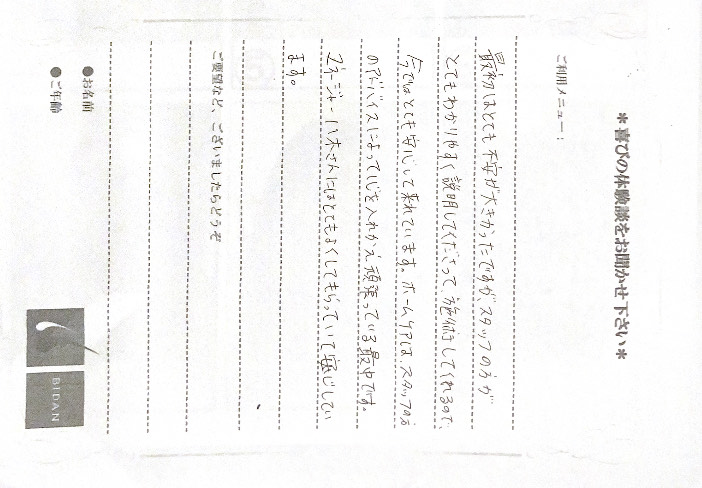 ＊喜びの体験談をお聞かせ下さい＊
ご利用メニュー：
最初はとても不安が大きかったですが、スタッフの方が
とてもわかりやすく説明してくださって、施術してくれるので、
今ではとても安心して来れています。ホームケアは、スタッフの方
のアドバイスによって心を入れかえ頑張っている最中です。
マネージャー八木さんにはとてもよくしてもらっていて安心してい
ます。
ご要望など、ございましたらどうぞ
●お名前
●ご年齢
BIDAN